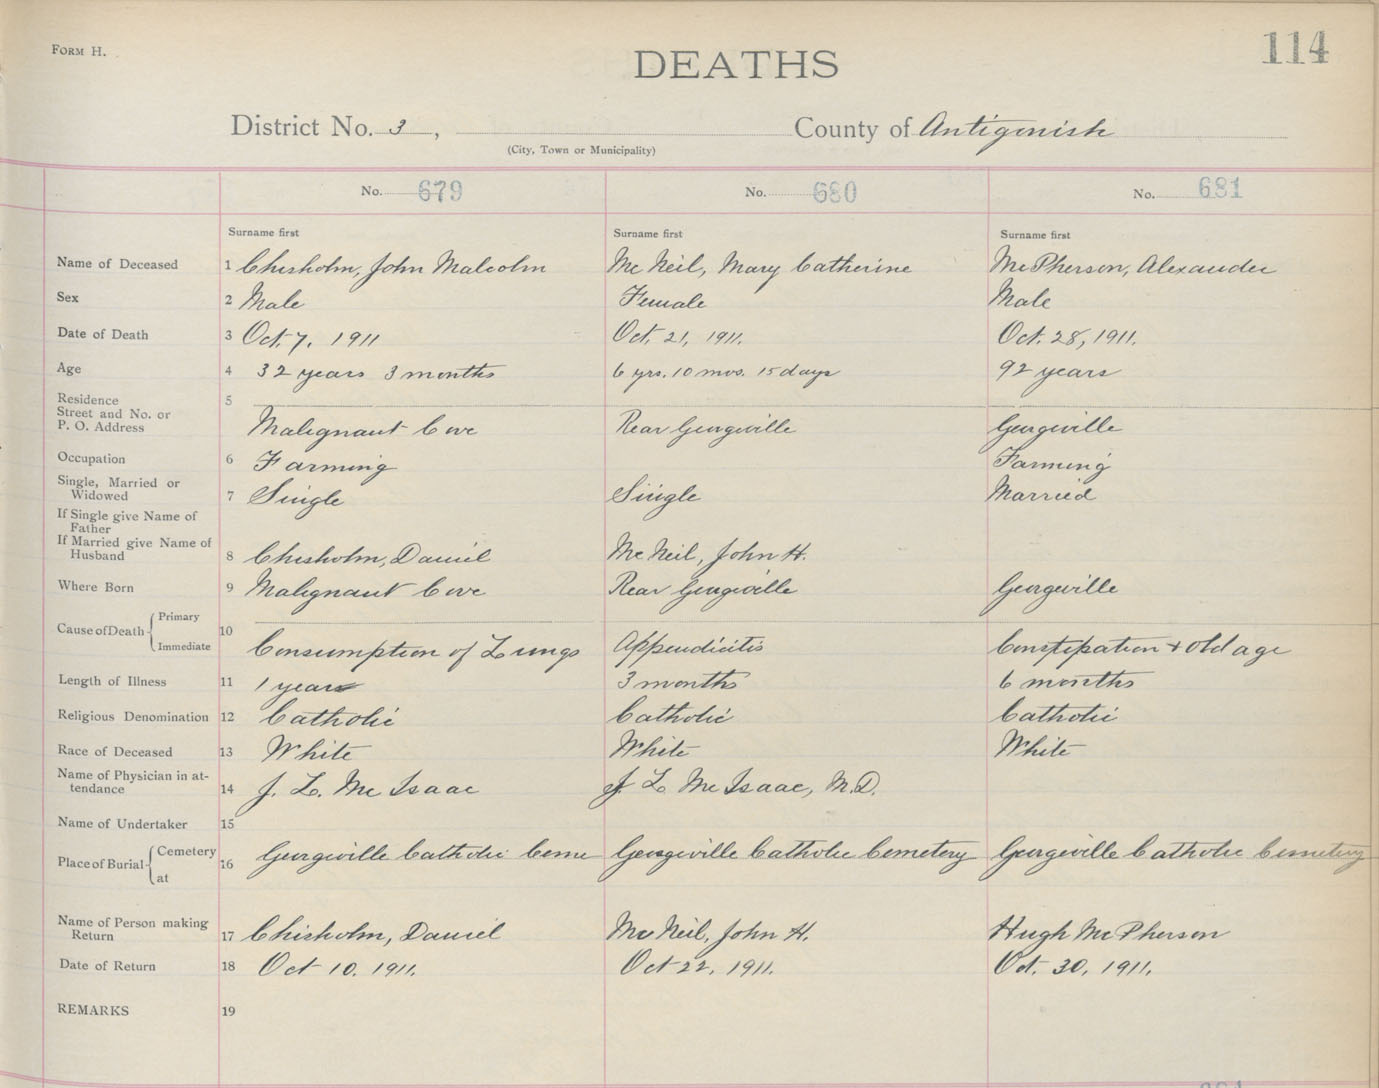 FORM H.
114
DEATHS
District No. 3, County of Antigonish
(City, Town or Municipality)
No. 679 No. 680 No. 681
Surname first Surname first Surname first
Name of Deceased 1 Chisholm, John Malcolm Mc Neil, Mary Catherine McPherson, Alexander
Sex 2 Male Female Male
Date of Death 3 Oct. 7. 1911 Oct. 21, 1911. Oct. 28, 1911.
Age 4 32 years 3 months 6 yrs. 10 mos. 15 days 92 years
Residence 5
Street and No. or
P. O. Address Malignant Cove Rear Georgeville Georgeville
Occupation 6 Farming Farming
Single, Married or
Widowed 7 Single Single Married
If Single give Name of
Father
If Married give Name of
Husband 8 Chisholm, Daniel Mc Neil, John H.
Where Born 9 Malignant Cove Rear Georgeville Georgeville
Cause of Death Primary 10
Immediate Consumption of Lungs Appendicitis Constipation + old age
Length of Illness 11 1 year 3 months 6 months
Religious Denomination 12 Catholic Catholic Catholic
Race of Deceased 13 White White White
Name of Physician in at-
tendance 14 J. L. Mc Isaac J. L Mc Isaac, M.D.
Name of Undertaker 15
Place of Burial Cemetery at 16 Georgeville Catholic Ceme Georgeville Catholic Cemetery Georgeville Catholic Cemetery
Name of Person making
Return 17 Chisholm, Daniel Mc Neil, John H. Hugh McPherson
Date of Return 18 Oct 10. 1911. Oct 22, 1911. Oct. 30, 1911.
REMARKS 19